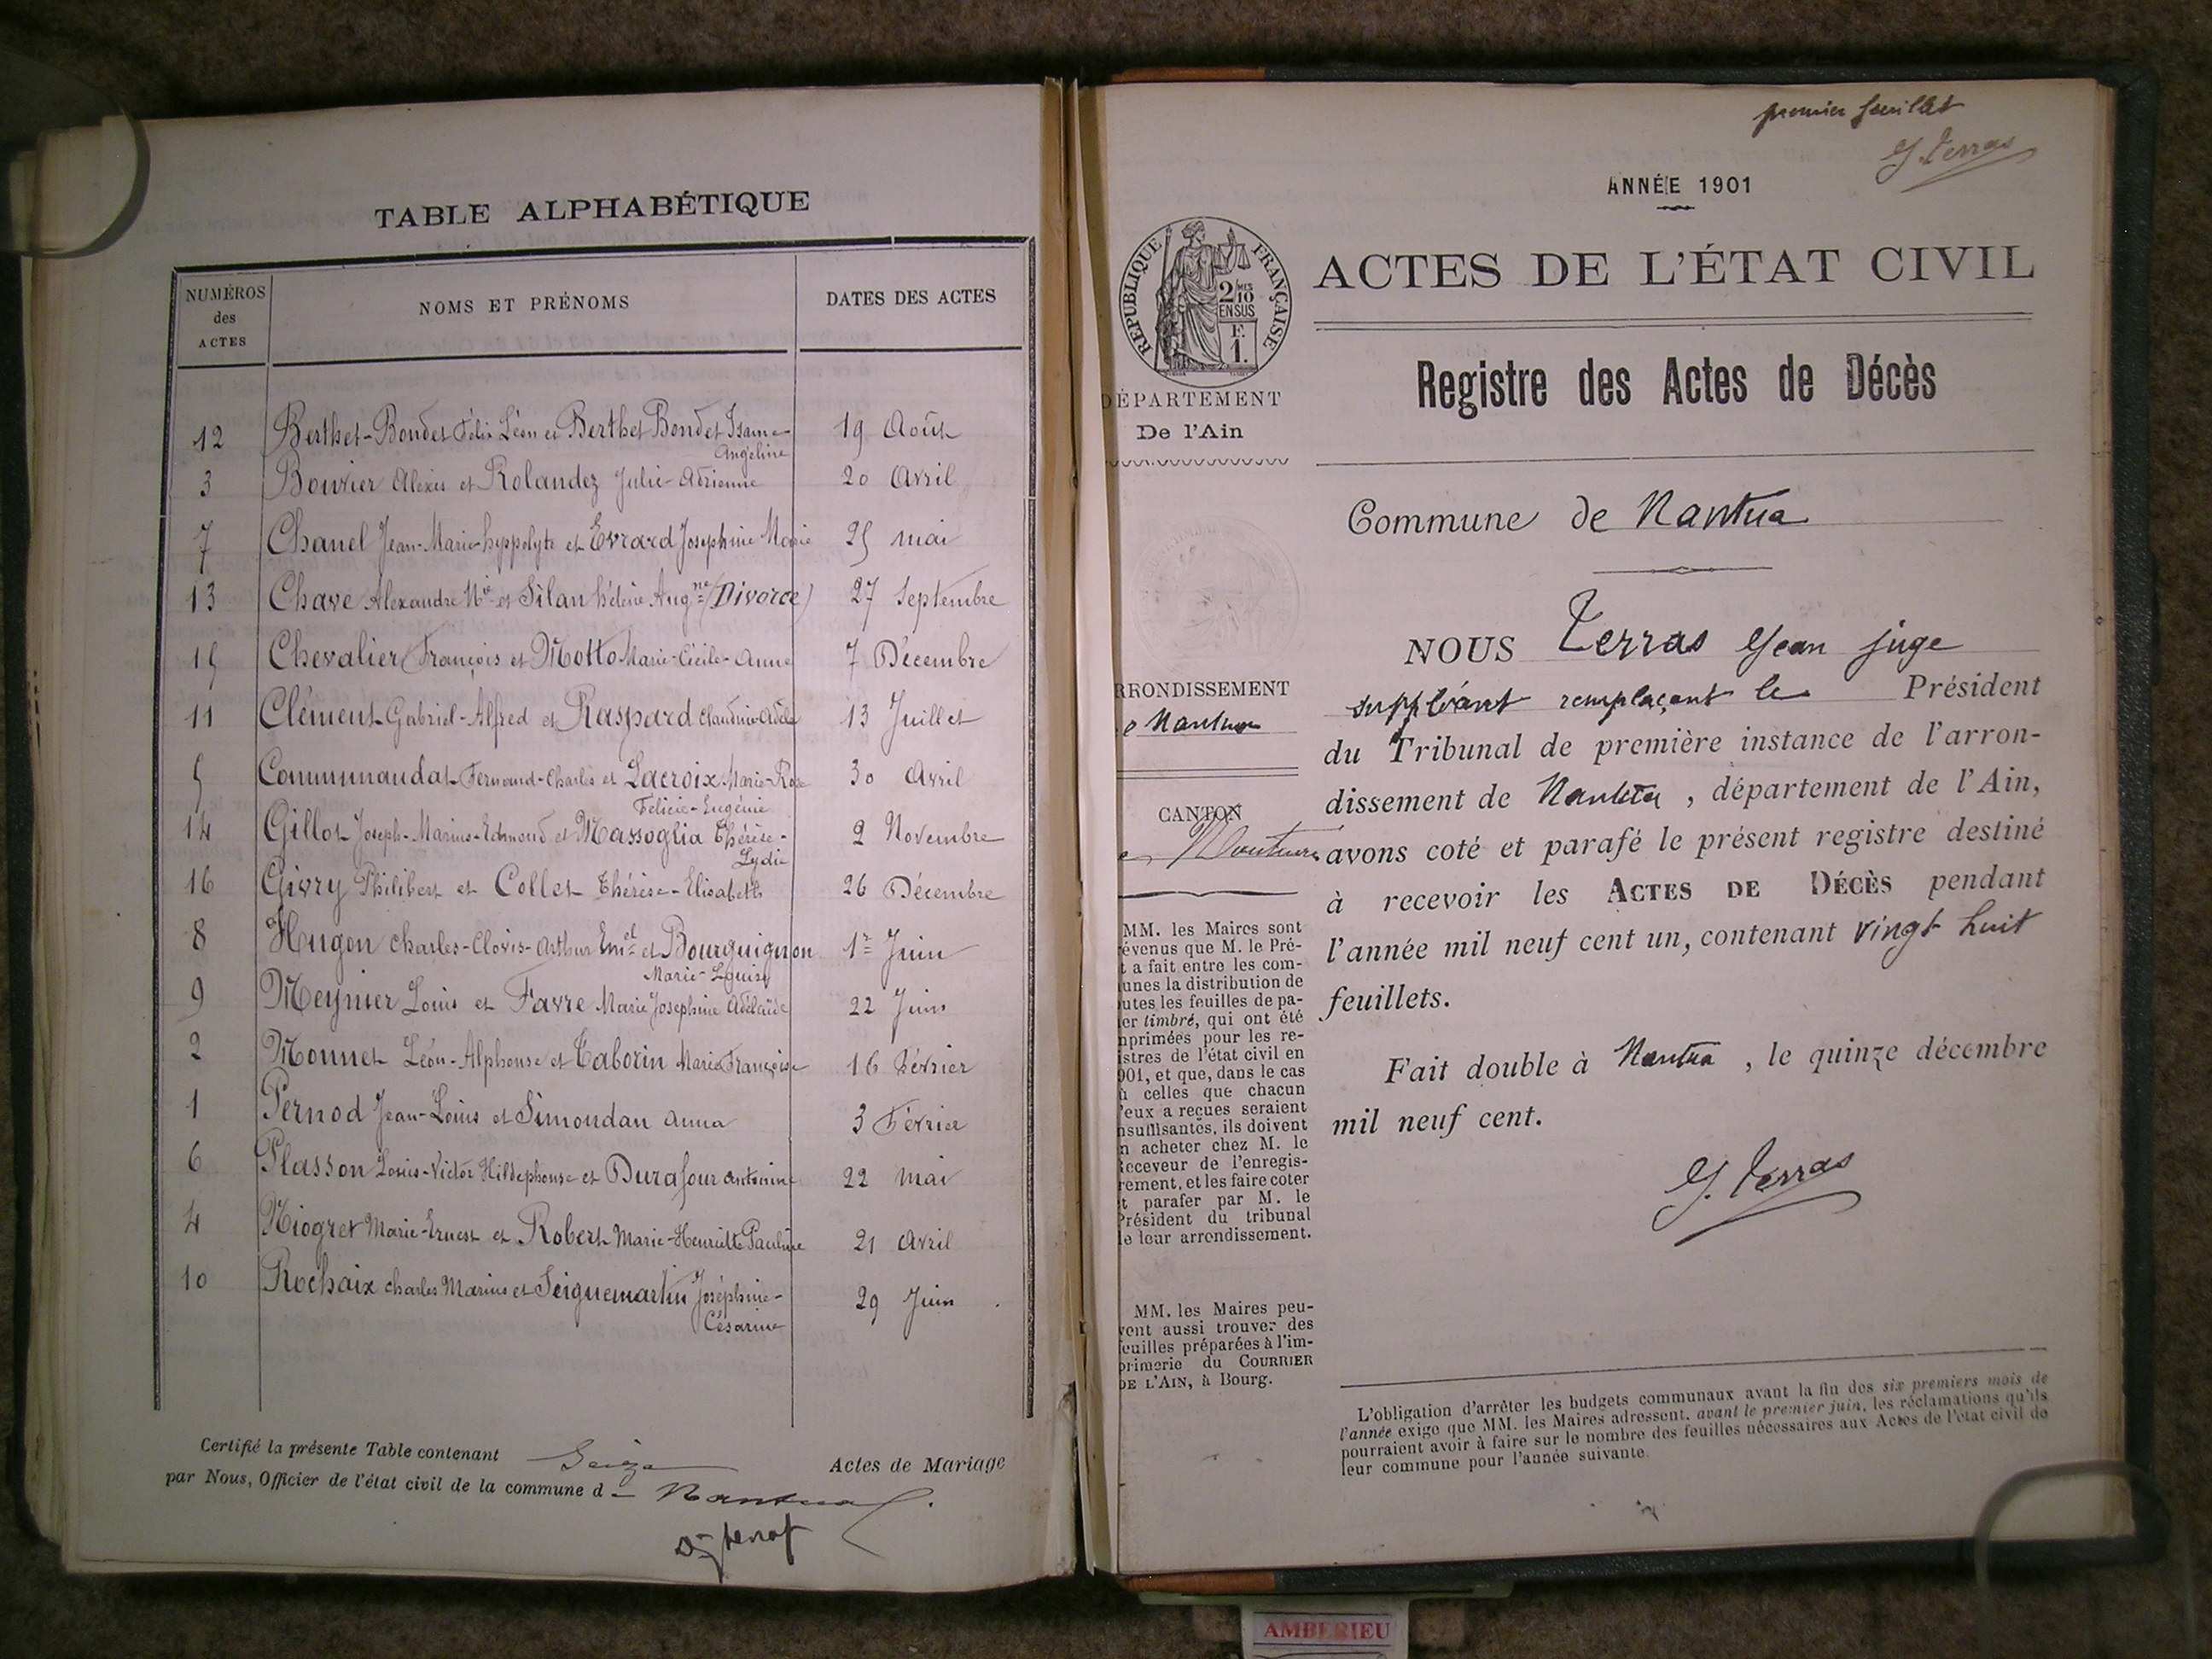 TABLE ALPHABÉTIQUE
NUMÉROS des ACTES
NOMS ET PRÉNOMS
DATES DES ACTES
12 Berthet-Bondet Félix Léon et Berthet Bondet Isaure- 19 Août
Angéline
3 Bouvier Alexis et Rolandez Julie-Adrienne 20 Avril
7 Chanel Jean-Marie-hyppolyte et Evrard Josephine Marie 25 mai
13 Chave Alexandre et Silan hélène Aug.ne (Divorce) 27 Septembre
15 Chevalier François et Motto Marie-Cécile-Anne 7 Décembre
11 Clément Gabriel-Alfred et Raspard Claudine Adèle 13 Juillet
5 Communaudat Fernand-Charles et Lacroix Marie-Rose 30 Avril
Félicie-Eugénie
14 Gillot Joseph-Marius-Edmond et Massoglia Thérèse- 2 Novembre
Lydie
16 Givry Philibert et Collet Thérèse-Elisabeth 26 Décembre
8 Hugon Charles-Clovis-Arthur Em.el et Bourguignon 1r Juin
Marie-Louise
9 Meynier Louis et Favre Marie Josephine Adélaïde 22 Juin
2 Monnet Léon-Alphonse et Taborin Marie Françoise 16 Février
1 Pernod Jean-Louis et Simondan Anna 3 Février
6 Plasson Louis-Victor Hildephonse et Durafour Antonine 22 mai
4 Riogret Marie-Ernest et Robert Marie-Henriette Pauline 21 Avril
10 Rochaix Charles Marius et Seignemartin Joséphine- 29 Juin
Césarine
Certifié la présente Table contenant Seize Actes de Mariage
par Nous, Officier de l'état civil de la commune d - Nantua
premier feuillet
J. Terras
ANNÉE 1901
RÉPUBLIQUE FRANÇAISE
2/10 MES
EN SUS
F.
1.
ACTES DE L'ÉTAT CIVIL
Registre des Actes de Décès
DÉPARTEMENT
De l'Ain
Commune de Nantua
NOUS Terras Jean juge
suppléant remplaçant le Président
du Tribunal de première instance de l'arron-
dissement de Nantua, département de l'Ain,
avons coté et parafé le présent registre destiné
à recevoir les ACTES DE DÉCÈS pendant
l'année mil neuf cent un, contenant vingt huit
feuillets.
Fait double à Nantua, le quinze décembre
mil neuf cent.
J. Terras
RRONDISSEMENT
e Nantua
CANTON
e Nantua
MM. les Maires sont
révenus que M. le Pré-
t a fait entre les com-
unes la distribution de
utes les feuilles de pa-
er timbré, qui ont été
mprimées pour les re-
istres de l'état civil en
901, et que, dans le cas
ù celles que chacun
'eux a reçues seraient
nsuffisantes, ils doivent
n acheter chez M. le
eceveur de l'enregis-
rement, et les faire coter
t parafer par M. le
Président du tribunal
e leur arrondissement.
MM. les Maires peu-
vent aussi trouver des
euilles préparées à l'im-
primerie du COURRIER
DE L'AIN, à Bourg.
L'obligation d'arrêter les budgets communaux avant la fin des six premiers mois de
l'année exige que MM. les Maires adressent, avant le premier juin, les réclamations qu'ils
pourraient avoir à faire sur le nombre des feuilles nécessaires aux Actes de l'état civil de
leur commune pour l'année suivante.
AMBERIEU